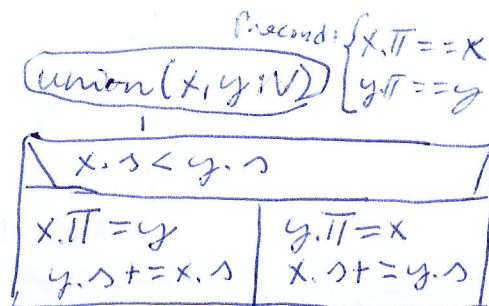 Precond: { x.π == x
y.π == y
union(x, y : V)
x.s < y.s
x.π = y
y.s += x.s
y.π = x
x.s += y.s